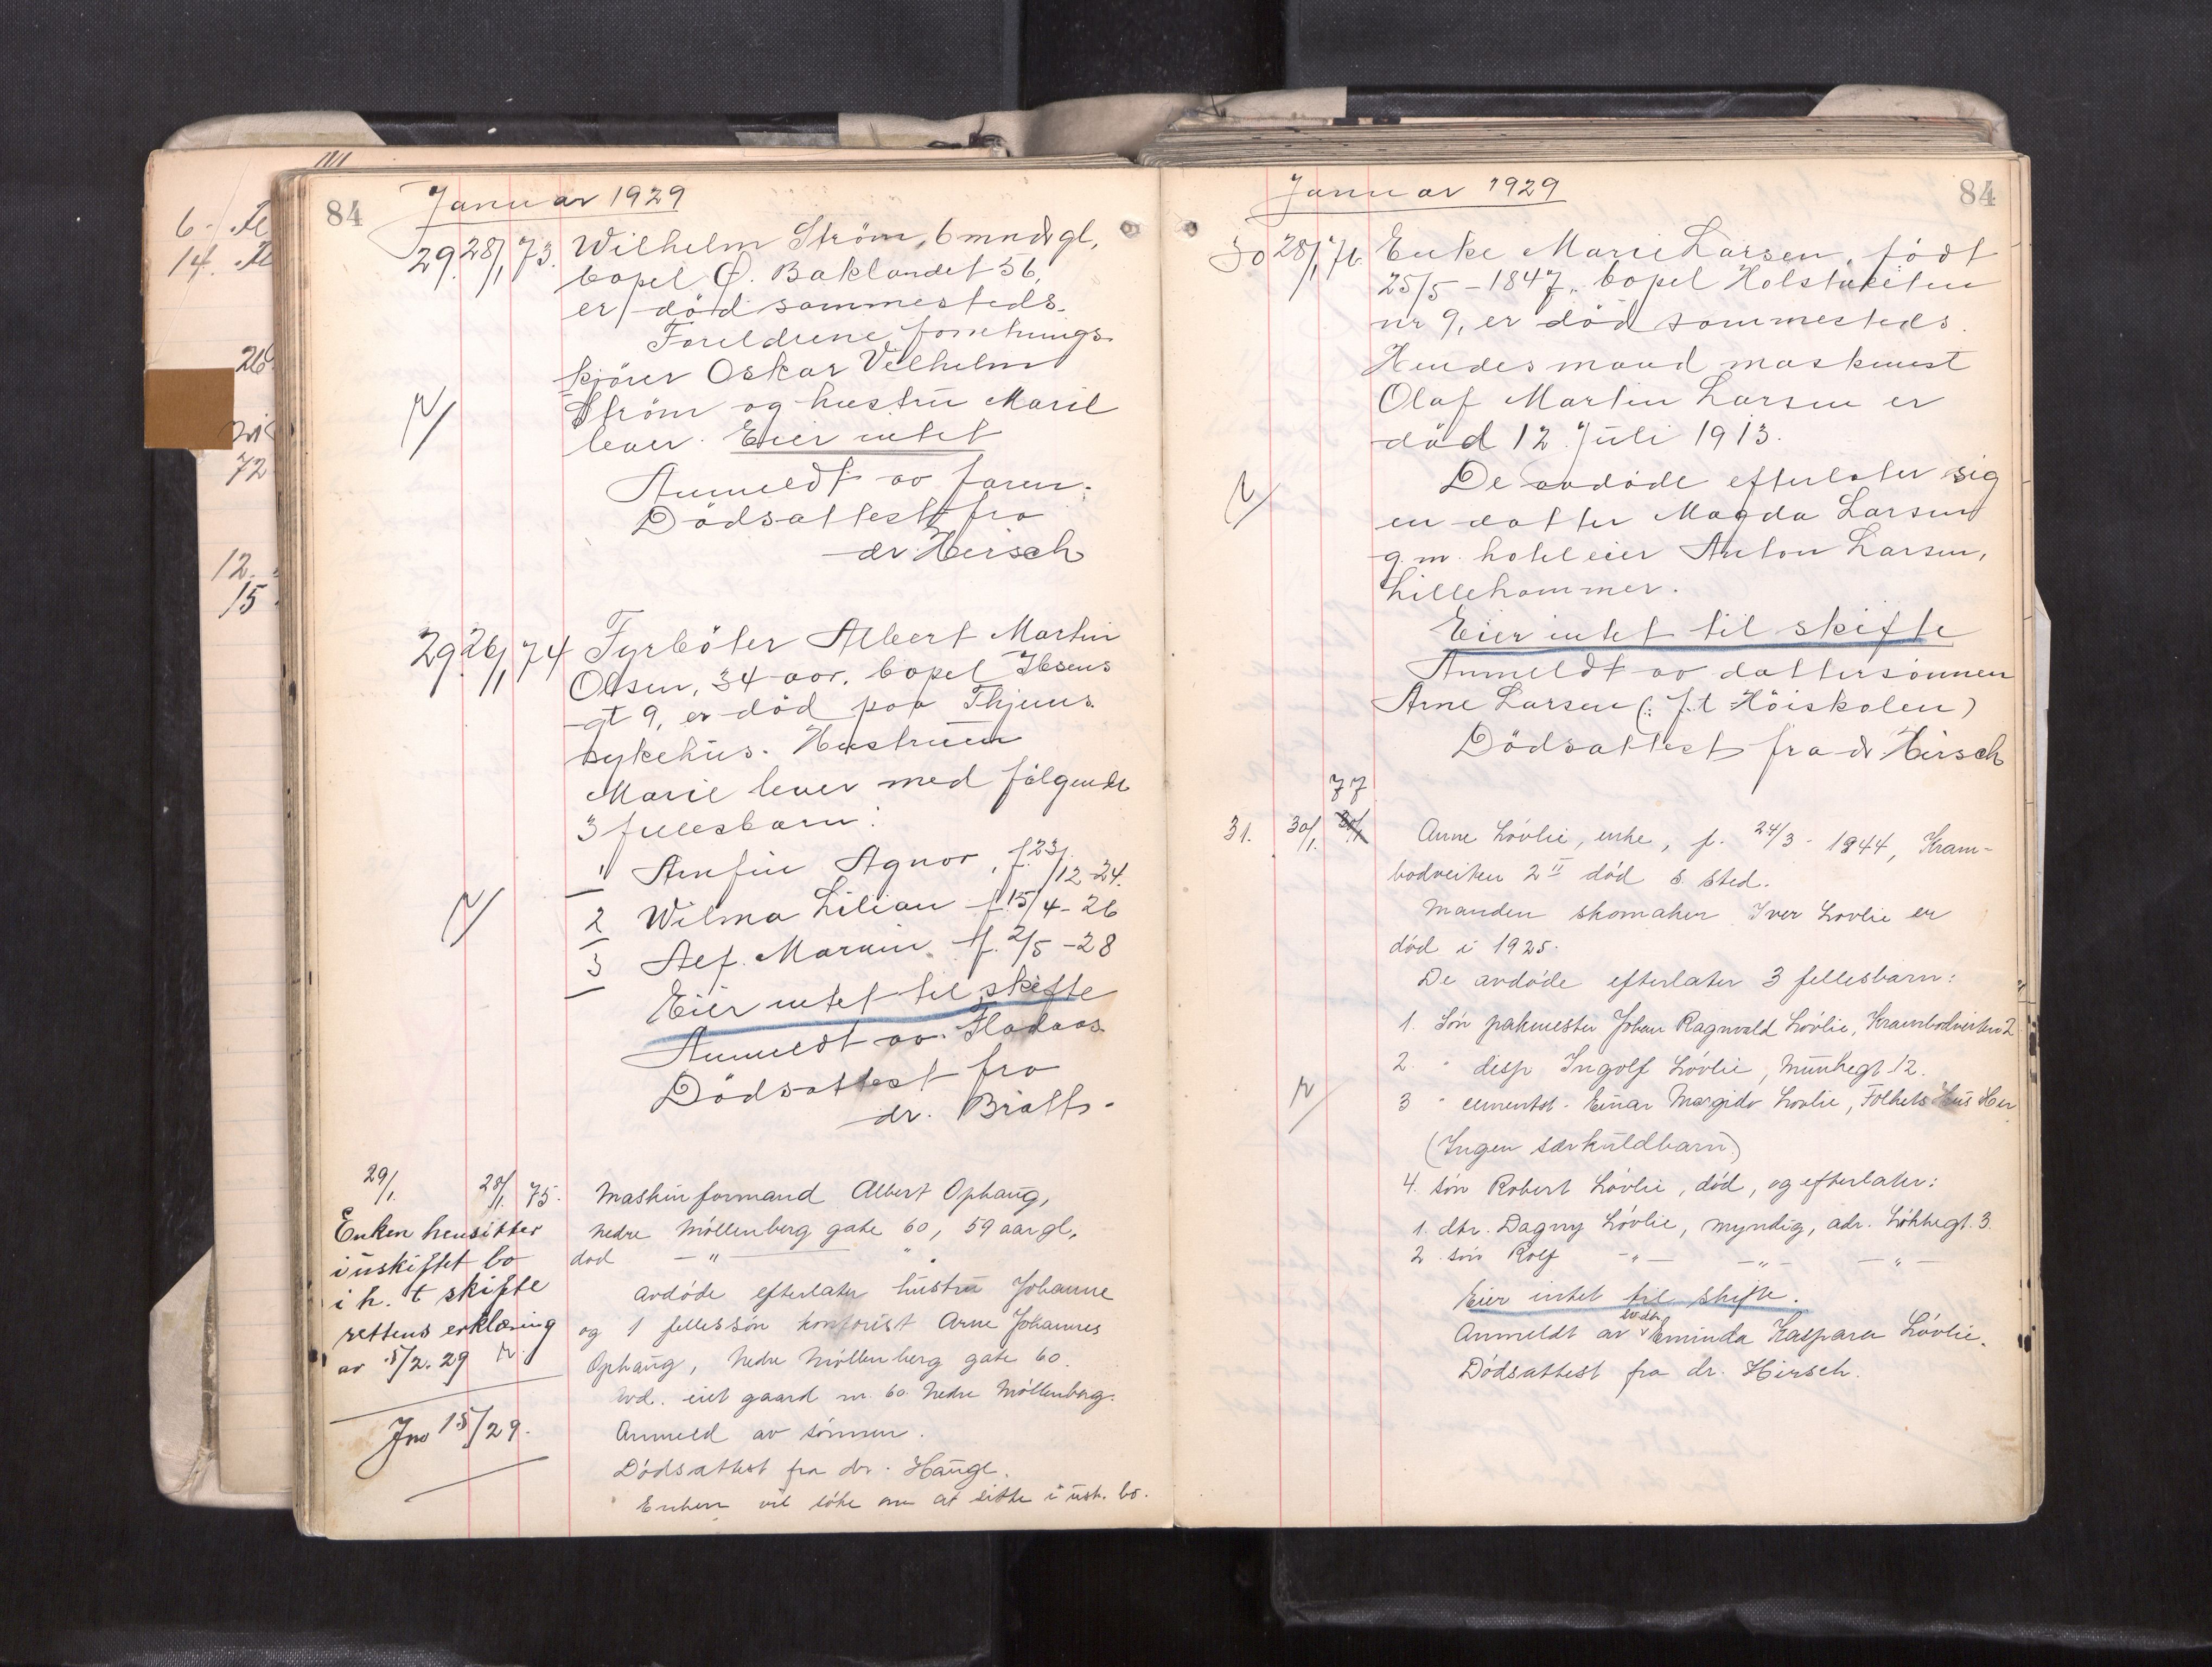 6.
14.
26
72
12.
15
84
Januar 1929
29. 28/1 73. Wilhelm Ström, 6 mndr gl,
bopel Ö. Baklandet 56,
er död sammesteds.
Foreldrene, forretnings-
kjörer Oskar Vilhelm
Ström og hustru Marie
lever. Eier intet
Anmeldt av faren.
Dödsattest fra
dr. Hirsch
29. 26/1 74 Fyrböter Albert Martin
Olsen, 34 aar, bopel Ibsens
gt 9, er död paa Thjems
sykehus. Hustruen
Marie lever med fölgende
3 fellesbarn:
1 Arnfin Agnor, f. 23/12-24.
2 Wilma Lilian f. 15/4-26
3 Alf. Marvin f. 2/5-28
Eier intet til skifte
Anmeldt av Fladaas
Dödsattest fra
dr. Bratt.
29/1. 28/1. 75. Maskinformand Albert Ophaug,
nedre Möllenberg gate 60, 59 aar gl,
död — " — "
Avdöde efterlater hustru Johanne
og 1 fellessön kontorist Arne Johannes
Ophaug, Nedre Möllenberg gate 60.
Avd. eiet gaard nr. 60 Nedre Möllenberg.
Anmeld av sönnen.
Dödsattest fra dr. Hauge.
Enken vil söke om at sitte i usk. bo.
Enken hensitter
i uskiftet bo
i h. t skifte
rettens erklæring
av 5/2. 29 N.
Jno 15/29.
Januar 1929
84
30 28/1 76. Enke Marie Larsen, födt
25/5-1847, bopel Holstveiten
nr 9, er död sammesteds.
Hendes mand maskinist
Olaf Martin Larsen er
död 12. Juli 1913.
De avdöde efterlater sig
en datter Magda Larsen
g. m. hoteleier Anton Larsen,
Lillehammer.
Eier intet til skifte
Anmeldt av dattersönnen
Arne Larsen (: f. t Höiskolen)
Dödsattest fra dr Hirsch
77
31. 30/1. Anne Lövlie, enke, f. 24/3-1844, Kram-
bodveiten 2 II död s. sted.
Manden skomaker Iver Lovlie er
död i 1925.
De avdöde efterlater 3 fellesbarn:
1. Sön pakmester Johan Ragnvald Lövlie, Krambodveiten 2
2. " disp Ingolf Lövlie, Munkegt 12.
3 " cementst. Einar Margido Lovlie, Folkets Hus Her
(Ingen særkuldbarn)
4. sön Robert Lövlie, död, og efterlater:
1. dtr. Dagny Lövlie, myndig, adr. Lökkegt. 3.
2. sön Rolf — " — — " — — " —
Eier intet til skifte.
Anmeldt av Eminda Kaspara Lövlie.
Dödsattest fra dr. Hirsch.